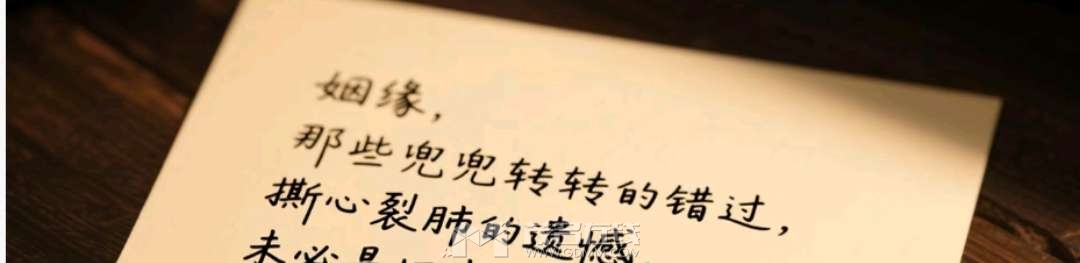 姻缘,
那些兜兜转转的错过,
撕心裂肺的遗憾
未必是